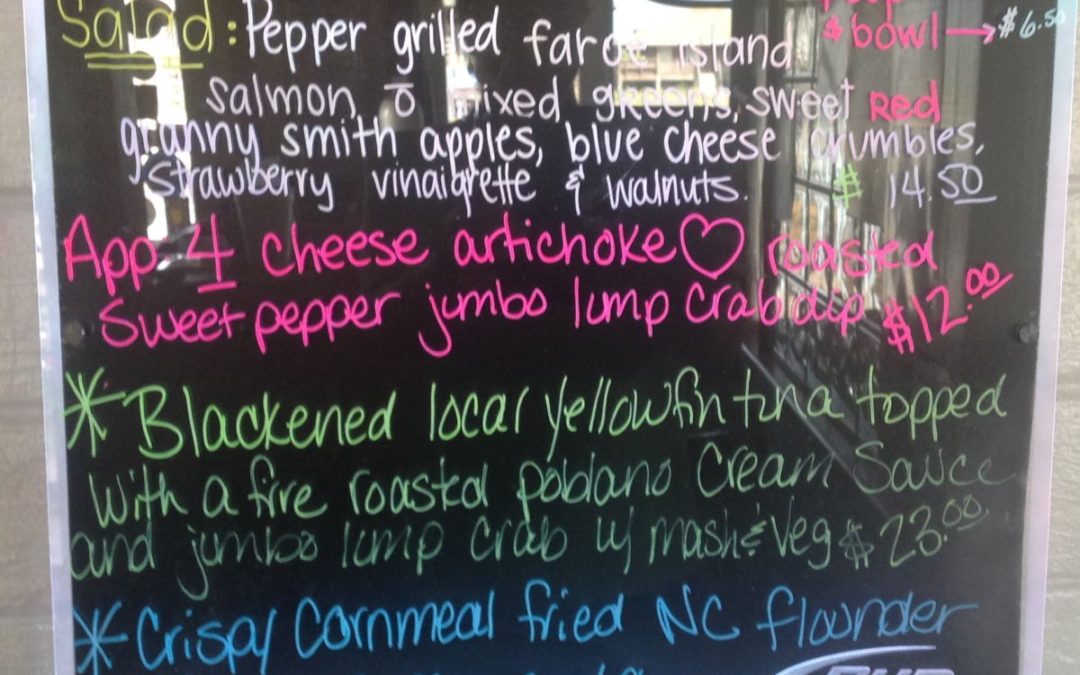 Salad: Pepper grilled faroe island
& bowl → $6.50
salmon, ō mixed greens, sweet Red
granny smith apples, blue cheese crumbles,
strawberry vinaigrette & walnuts. $ 14.50
App. 4 cheese artichoke ♡ roasted
Sweet pepper jumbo lump crab dip $12.00
* Blackened local yellowfin tuna topped
with a fire roasted poblano Cream Sauce
and jumbo lump crab w/ mash & veg $23.00
* Crispy Cornmeal fried NC flounder